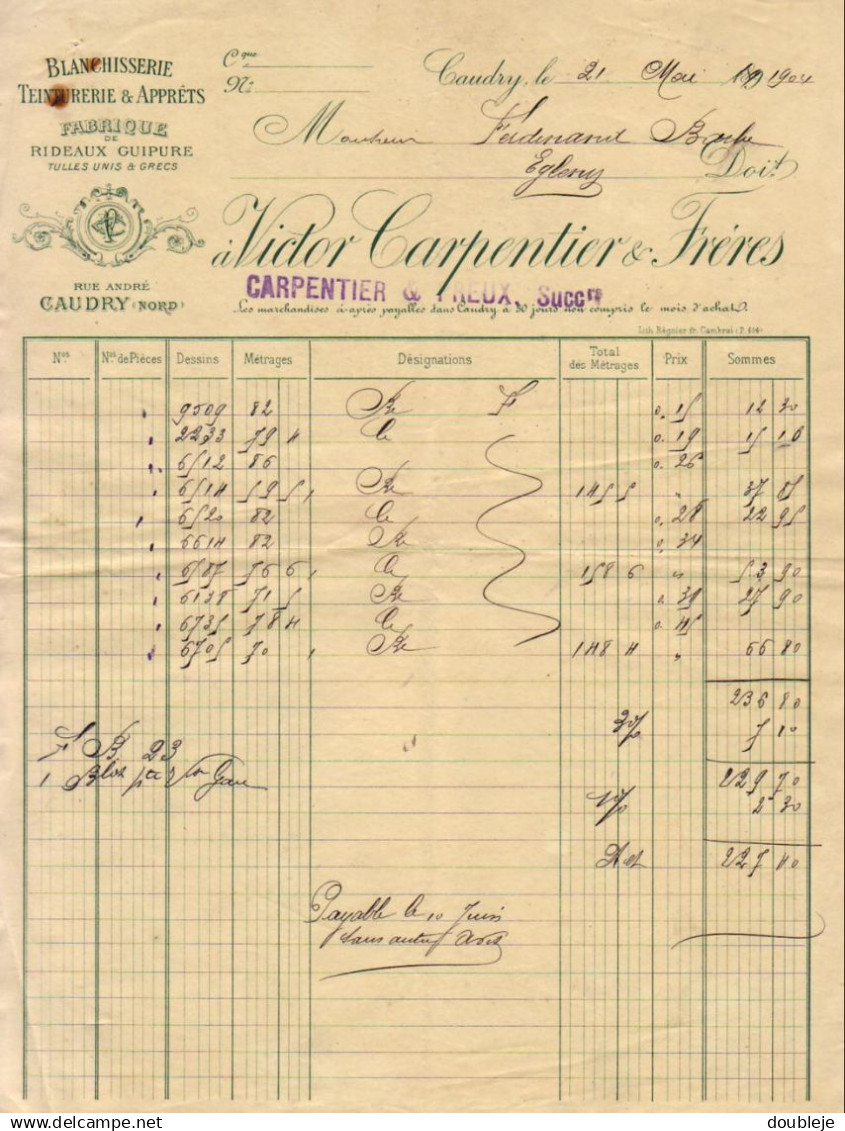 BLANCHISSERIE
TEINTURERIE & APPRÊTS
FABRIQUE
DE
RIDEAUX GUIPURE
TULLES UNIS & GRECS
RUE ANDRÉ
CAUDRY (NORD)
Cque
No.
Caudry, le 21 Mai 1904
Monsieur Ferdinand
Doit
à Victor Carpentier & Fréres
CARPENTIER & TREUX, Succrs
Les marchandises ci-après payables dans Caudry à 30 jours non compris le mois d'achat.
Lith. Régnier fr. Cambrai
Nos. Nos de Pièces Dessins Métrages Désignations Total des Métrages Prix Sommes
9509 82 0.15 12 30
2233 79 4 0.19 15 10
6512 86 0.26
6514 59 5 145 5 " 37 85
6520 82 0.28 22 95
6614 82 0.34
6587 76 6 158 6 " 53 90
6138 71 5 0.39 27 90
6735 78 4 0.45
6705 70 148 4 " 66 80
236 80
3% 7 10
F B 23
229 70
1 Gare
1% 2 30
Net 227 40
Payable le 10 Juin
sans autre avis
doubleje